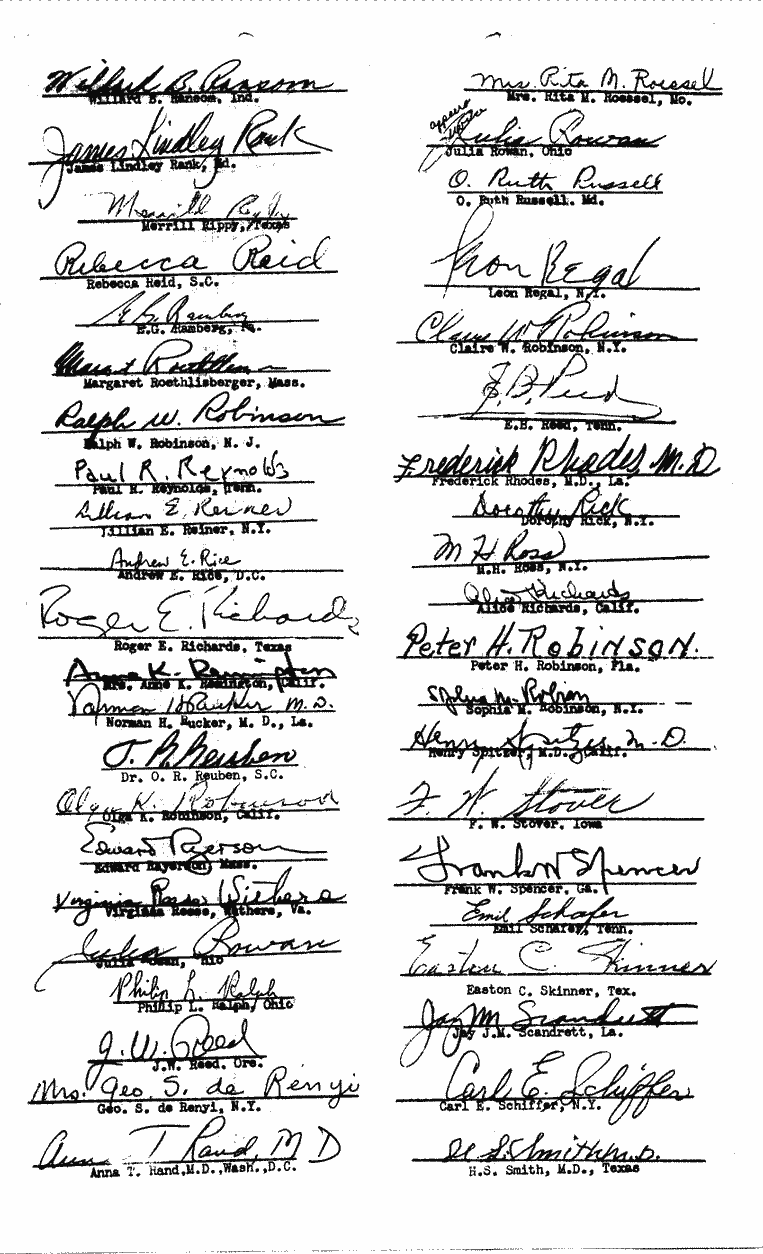 Willard B. Ransom
Willard B. Ransom, Ind.
James Lindley Rank
James Lindley Rank, Md.
Merrill Rippy
Merrill Rippy, Texas
Rebecca Reid
Rebecca Reid, S.C.
E.G. Ramberg
E.G. Ramberg, Pa.
Margaret Roethlisberger, Mass.
Ralph W. Robinson
Ralph W. Robinson, N. J.
Paul R. Reynolds
Paul R. Reynolds, Tenn.
Lillian E. Reiner
Lillian E. Reiner, N.Y.
Andrew E. Rice
Andrew E. Rice, D.C.
Roger E. Richards
Roger E. Richards, Texas
Anne K. Remington
Mrs. Anne K. Remington, Calif.
Norman H Rucker M.D.
Norman H. Rucker, M. D., La.
O. R. Reuben
Dr. O. R. Reuben, S.C.
Olga K. Robinson
Olga K. Robinson, Calif.
Edward Ryerson
Edward Rayerson, Mass.
Virginia Reese Withers
Virginia Reese, Withers, Va.
Julia Rowan
Julia Rowan, Ohio
Philip L. Ralph
Phillip L. Ralph, Ohio
J. W. Reed
J.W. Reed. Ore.
Mrs. Geo. S. de Renyi
Geo. S. de Renyi, N.Y.
Anna T Rand, M D
Anna T. Hand,M.D.,Wash.,D.C.
Mrs Rita M. Roessel
Mrs. Rita M. Roessel, Mo.
appears twice
Julia Rowan
Julia Rowan, Ohio
O. Ruth Russell
O. Ruth Russell. Md.
Leon Regal
Leon Regal, N.Y.
Claire W. Robinson
Claire W. Robinson, N.Y.
E. B. Reed
E.B. Reed, Tenn.
Frederick Rhodes M.D
Frederick Rhodes, M.D., La.
Dorothy Rick
Dorothy Rick, N.Y.
M H Ross
M.H. Ross, N.Y.
Alice Richards
Alice Richards, Calif.
Peter H. Robinson.
Peter H. Robinson, Fla.
Sophia M. Robinson
Sophia M. Robinson, N.Y.
Henry Spitzer M.D.
Henry Spitzer, M.D. Calif.
F. W. Stover
F. W. Stover. Iowa
Frank W Spencer
Frank W. Spencer, Ga.
Emil Schafer
Emil Schafer, Tenn.
Easton C. Skinner
Easton C. Skinner, Tex.
Jay M Scandrett
Jay J.M. Scandrett, La.
Carl E. Schiffer
Carl E. Schiffer, N.Y.
H S. Smith M.D.
H.S. Smith, M.D., Texas